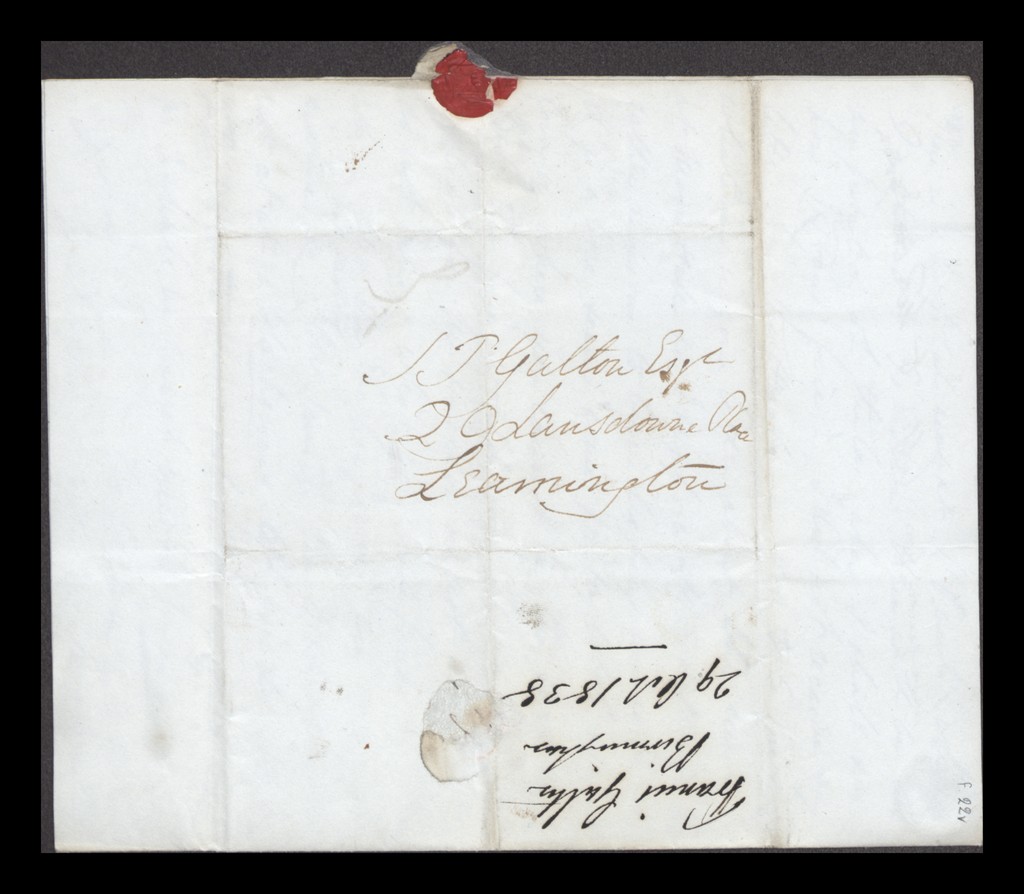 S T Galton Esqr
29 Lansdowne Place
Leamington
Francis Galton
Birmingham
29 Oct 1838
f. 22v